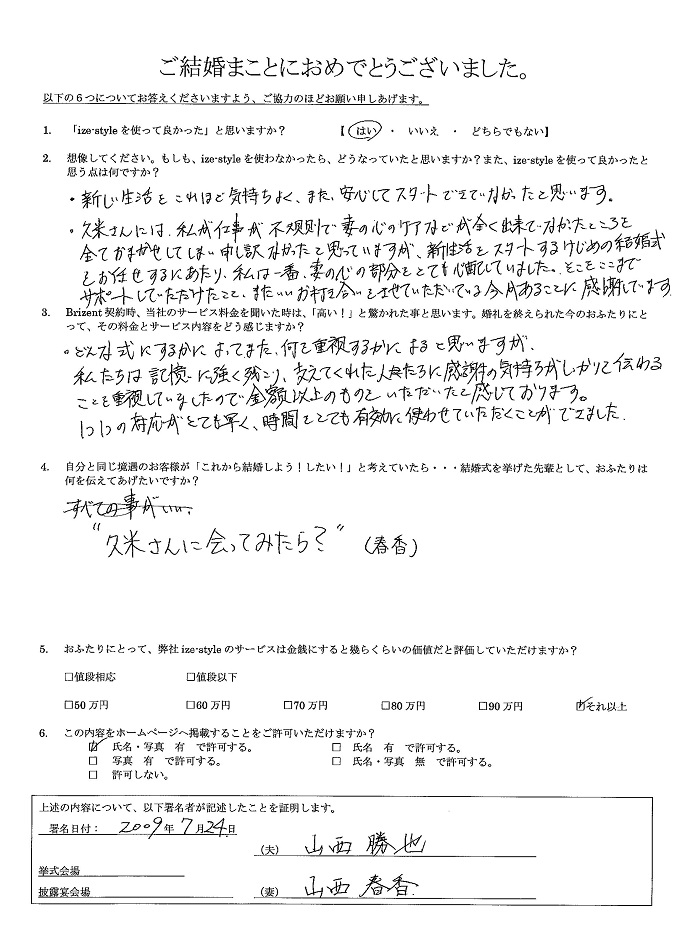 ご結婚まことにおめでとうございました。
以下の６つについてお答えくださいますよう、ご協力のほどお願い申しあげます。
1. 「ize-styleを使って良かった」と思いますか？ 【 はい ・ いいえ ・ どちらでもない】
2. 想像してください。もしも、ize-styleを使わなかったら、どうなっていたと思いますか？また、ize-styleを使って良かったと
思う点は何ですか？
・新しい生活をこれほど気持ちよく、また、安心してスタートできていなかったと思います。
・久米さんには、私が仕事が不規則で妻の心のケアなどが全く出来ていなかったところを
全ておまかせしてしまい申し訳なかったと思っていますが、新生活をスタートするけじめの結婚式
をお任せするにあたり、私は一番、妻の心の部分をとても心配していました。そこをここまで
サポートしていただけたこと、またいいお付き合いをさせていただいている今があることに感謝しています
3. Brizent契約時、当社のサービス料金を聞いた時は、「高い！」と驚かれた事と思います。婚礼を終えられた今のおふたりにと
って、その料金とサービス内容をどう感じますか？
・どんな式にするかによってまた、何を重視するかによると思いますが、
私たちは記憶に強く残り、支えてくれた人たちに感謝の気持ちがしっかりと伝わる
ことを重視していましたので金額以上のものをいただいたと感じております。
1つ1つの対応がとても早く、時間をとても有効に使わせていただくことができました。
4. 自分と同じ境遇のお客様が「これから結婚しよう！したい！」と考えていたら・・・結婚式を挙げた先輩として、おふたりは
何を伝えてあげたいですか？
すべての事がいい。
“久米さんに会ってみたら？” (春香)
5. おふたりにとって、弊社ize-styleのサービスは金銭にすると幾らくらいの価値だと評価していただけますか？
□値段相応 □値段以下
□50万円 □60万円 □70万円 □80万円 □90万円 ☑それ以上
6. この内容をホームページへ掲載することをご許可いただけますか？
☑ 氏名・写真 有 で許可する。 □ 氏名 有 で許可する。
□ 写真 有 で許可する。 □ 氏名・写真 無 で許可する。
□ 許可しない。
上述の内容について、以下署名者が記述したことを証明します。
署名日付： 2009年7月24日
(夫) 山西 勝也
挙式会場
披露宴会場 (妻) 山西 春香